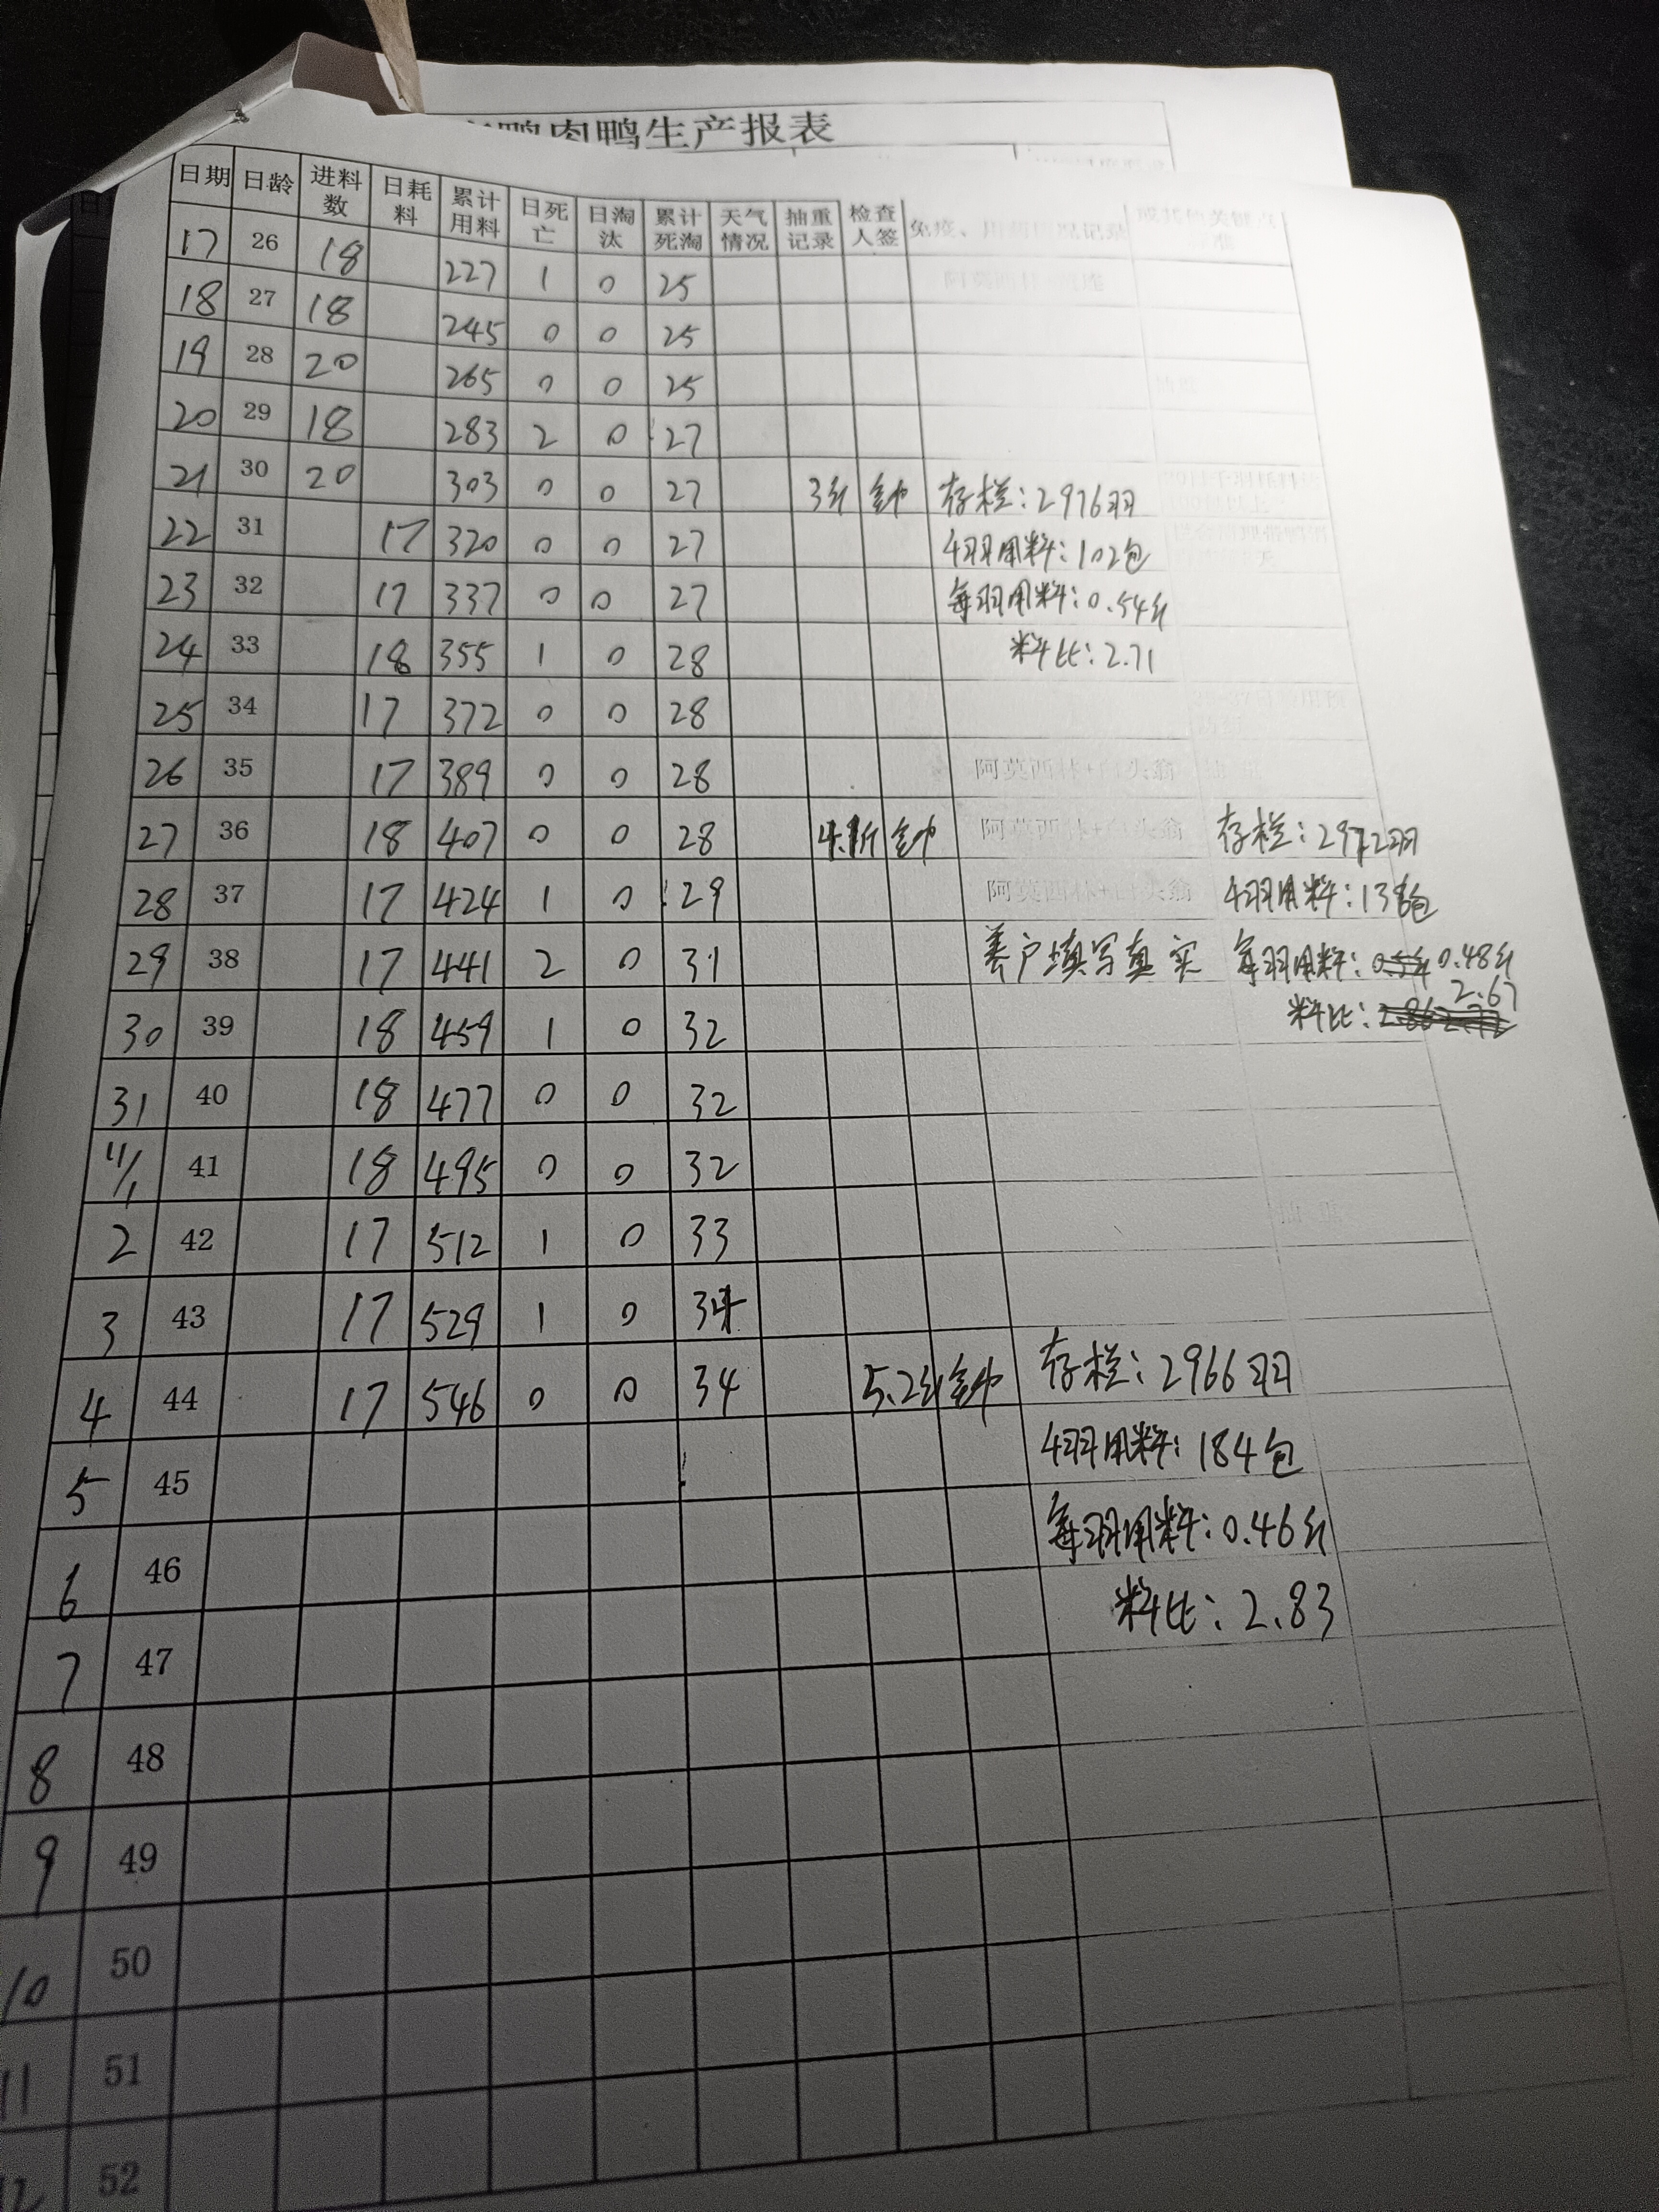 肉鸭生产报表
日期 日龄 进料数 日耗料 累计用料 日死亡 日淘汰 累计死淘 天气情况 抽重记录 检查人签 免疫、用药情况记录
17 26 18 227 1 0 25
18 27 18 245 0 0 25
19 28 20 265 0 0 25
20 29 18 283 2 0 27
21 30 20 303 0 0 27 3斤 存栏:2976羽
22 31 17 320 0 0 27 4羽用料:102包
23 32 17 337 0 0 27 每羽用料:0.54斤
24 33 18 355 1 0 28 料比:2.71
25 34 17 372 0 0 28
26 35 17 389 0 0 28 阿莫西林+白头翁
27 36 18 407 0 0 28 4.1斤 阿莫西林+白头翁 存栏:2972羽
28 37 17 424 1 0 29 阿莫西林+白头翁 4羽用料:138包
29 38 17 441 2 0 31 养户填写真实 每羽用料:0.48斤
30 39 18 459 1 0 32 料比:2.67
31 40 18 477 0 0 32
11/1 41 18 495 0 0 32
2 42 17 512 1 0 33
3 43 17 529 1 0 34
4 44 17 546 0 0 34 5.2斤 存栏:2966羽
5 45 4羽用料:184包
6 46 每羽用料:0.46斤
7 47 料比:2.83
8 48
9 49
10 50
11 51
12 52